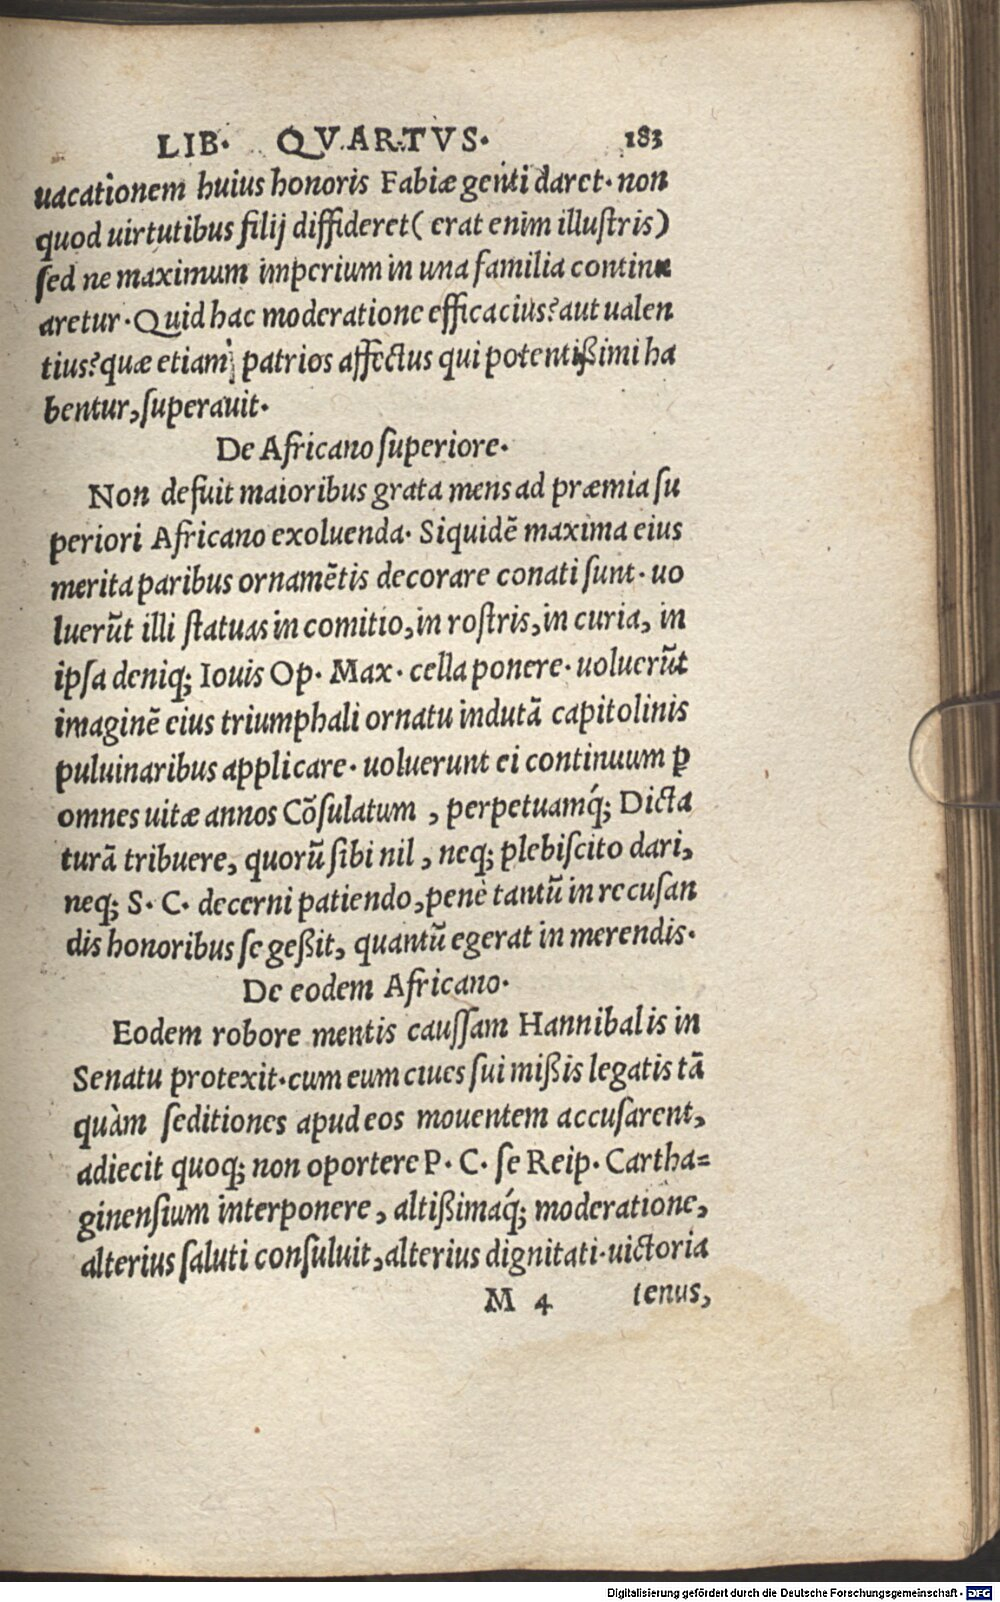 LIB. QVARTVS. 183
uacationem huius honoris Fabiæ genti daret. non
quod uirtutibus filij diffideret ( erat enim illuſtris )
ſed ne maximum imperium in una familia continu
aretur. Quid hac moderatione efficacius? aut ualen
tius? quæ etiam patrios affectus qui potentißimi ha
bentur, ſuperauit.
De Africano ſuperiore.
Non defuit maioribus grata mens ad præmia ſu
periori Africano exoluenda. Siquidē maxima eius
merita paribus ornamētis decorare conati ſunt. uo
luerūt illi ſtatuas in comitio, in roſtris, in curia, in
ipſa deniq; Iouis Op. Max. cella ponere. uoluerūt
imaginē eius triumphali ornatu indutā capitolinis
puluinaribus applicare. uoluerunt ei continuum ꝑ
omnes uitæ annos Cōſulatum , perpetuamq́; Dicta
turā tribuere, quorū ſibi nil , neq; plebiſcito dari,
neq; S. C. decerni patiendo, penè tantū in recuſan
dis honoribus ſe geßit, quantū egerat in merendis.
De eodem Africano.
Eodem robore mentis cauſſam Hannibalis in
Senatu protexit. cum eum ciues ſui mißis legatis tā
quàm ſeditiones apud eos mouentem accuſarent,
adiecit quoq; non oportere P. C. ſe Reip. Cartha=
ginenſium interponere , altißimaq́; moderatione,
alterius ſaluti conſuluit, alterius dignitati. uictoria
M 4 tenus,
Digitalisierung gefördert durch die Deutsche Forschungsgemeinschaft - DFG